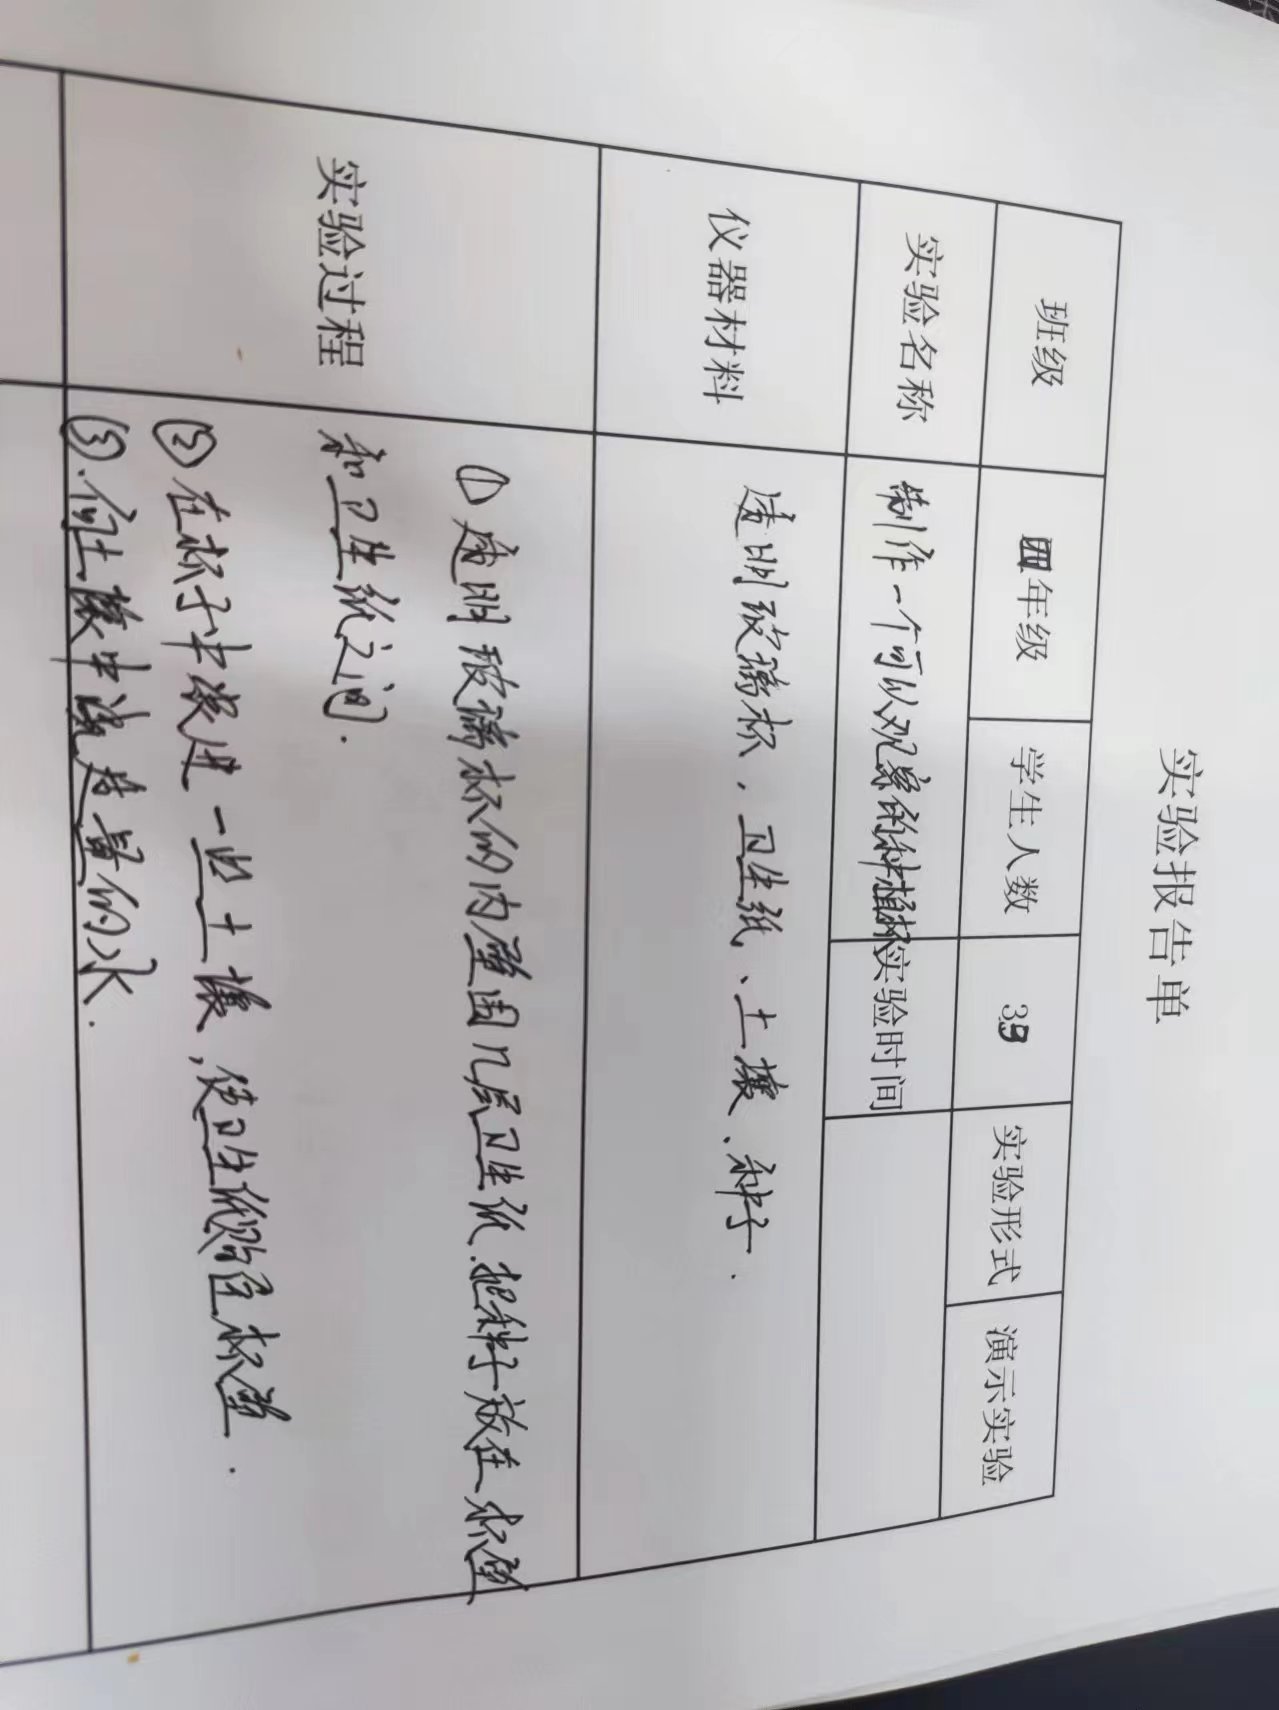 实验报告单
班级 四年级 学生人数 39 实验形式 演示实验
实验名称 制作一个可以观察的种植杯 实验时间
仪器材料 透明玻璃杯，卫生纸、土壤、种子.
实验过程
①透明玻璃杯的内壁围几层卫生纸.把种子放在杯壁
和卫生纸之间.
②在杯子中装进一些土壤，使卫生纸贴近杯壁.
③.向土壤中浇适量的水.